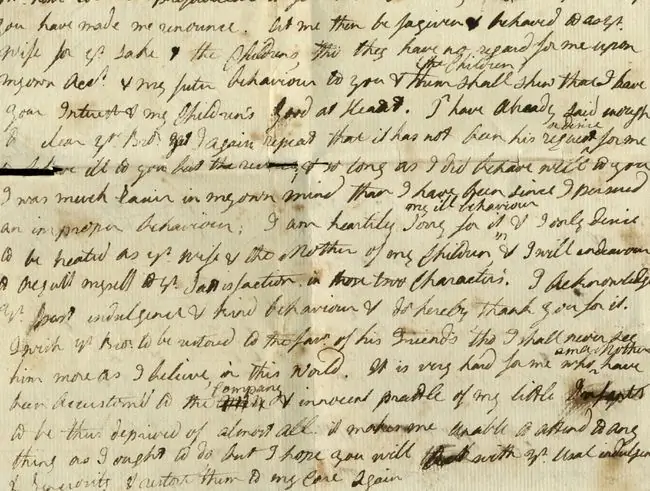 you have made me renounce. let me then be forgiven & behaved to as yr.
Wife for yr. sake & the Children's, tho they have no regard for me upon
my own Acct. & my futer behaviour to you & the Children them shall shew that I have
your Interest & my Children's Good at Heart. I have already said enough
to clear yr. Bror. yet I again repeat that it has not been his request or desire for me
to behave ill to you but the & so long as I did behave well to you
I was much easier in my own mind than I have been since I persued
an improper behaviour; I am heartily sorry for my ill behaviour it & I only desire
to be treated as yr. Wife & the Mother of my Children & I will endeavour
to regulate myself to yr. Satisfaction in those two Characters. I Acknowledge
yr. past indulgence & kind behaviour & do hereby thank you for it.
I wish yr. Bror. to be restored to the favr. of his Friends tho I shall never see
him more as I believe in this World. It is very hard for me who am a Mother & have
been accustom'd to the Company & innocent prattle of my little Infants
to be thus deprived of almost all. it makes me unable to attend to any
thing as I ought to do but I hope you will with yr. usual indulgence
& Generosity & restore them to my Care again